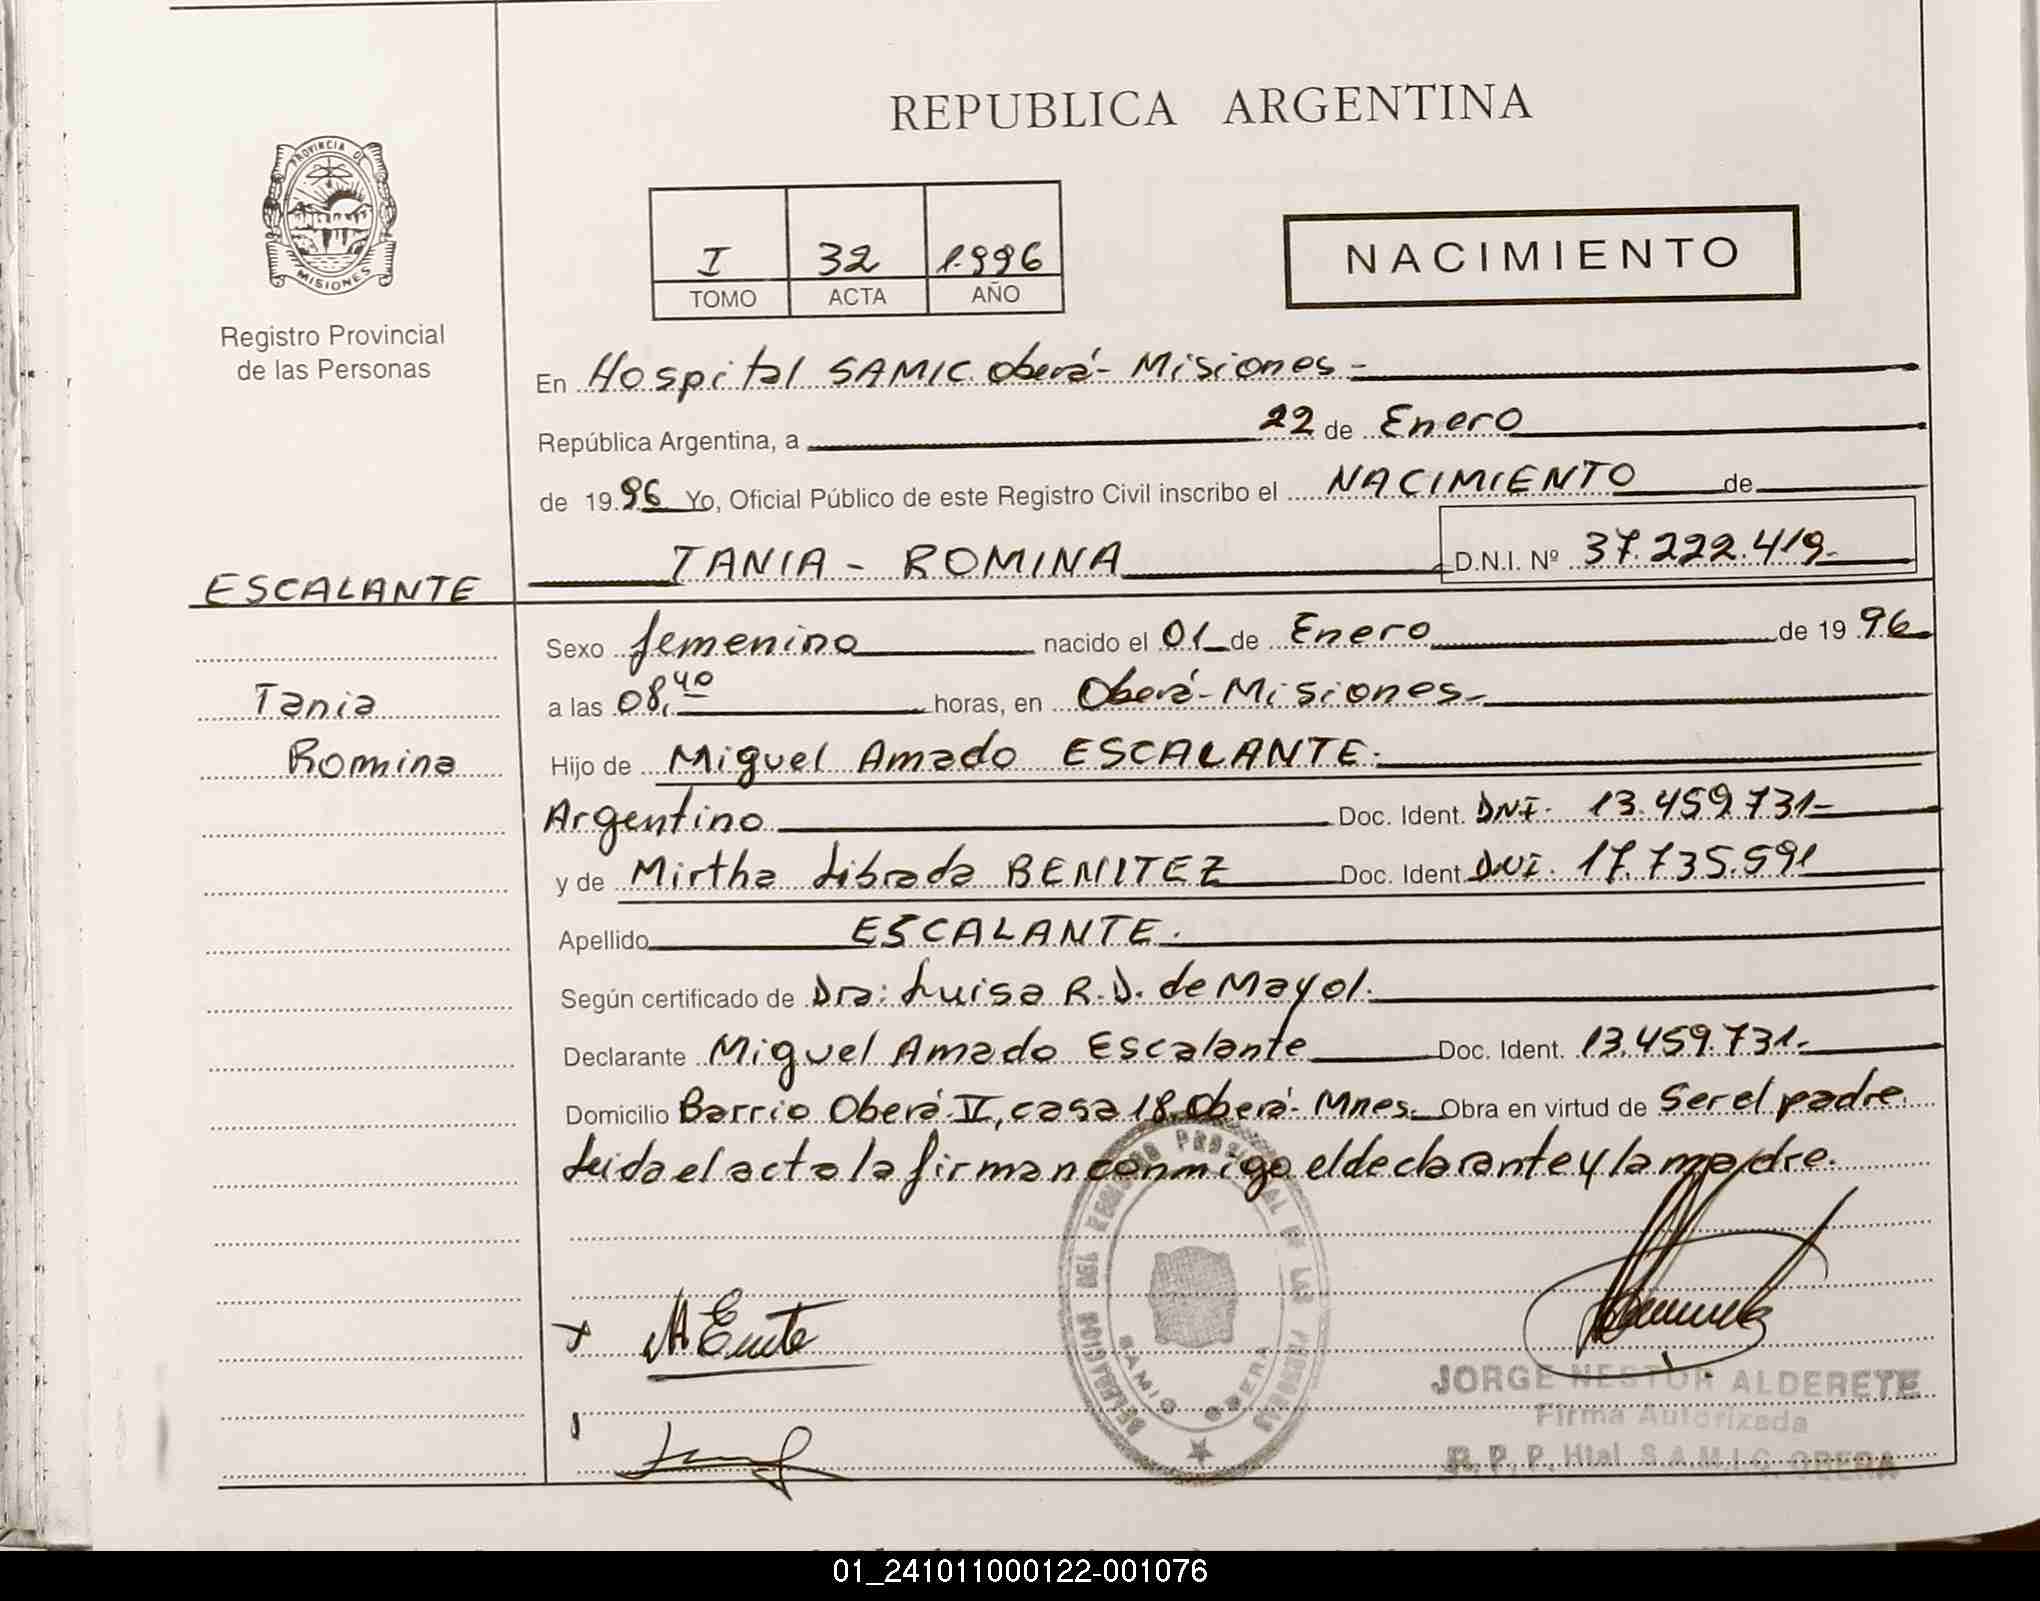 REPUBLICA ARGENTINA
PROVINCIA DE
MISIONES
Registro Provincial
de las Personas
I 32 1.996
TOMO ACTA AÑO
NACIMIENTO
En Hospital SAMIC. Oberá - Misiones -
República Argentina, a 22 de Enero
de 19.96 Yo, Oficial Público de este Registro Civil inscribo el NACIMIENTO de
TANIA - ROMINA D.N.I. Nº 37.222.419-
ESCALANTE
Tania
Romina
Sexo femenino nacido el 01 de Enero de 19 96
a las 08,40 horas, en Oberá - Misiones-
Hijo de Miguel Amado ESCALANTE.
Argentino Doc. Ident. DNI. 13.459.731-
y de Mirtha Librada BENITEZ Doc. Ident. DNI. 17.735.591
Apellido ESCALANTE.
Según certificado de Dra: Luisa R.D. de Mayol.
Declarante Miguel Amado Escalante Doc. Ident. 13.459.731-
Domicilio Barrio Oberá II, casa 18. Oberá - Mnes. Obra en virtud de Ser el padre.
Leida el acta la firman conmigo el declarante y la madre.
DELEGACION DEL REGISTRO PROVINCIAL DE LAS PERSONAS
SAMIC OBERA
JORGE NESTOR ALDERETE
Firma Autorizada
R. P. P. Htal. S.A.M.I.C. OBERA
01_241011000122-001076